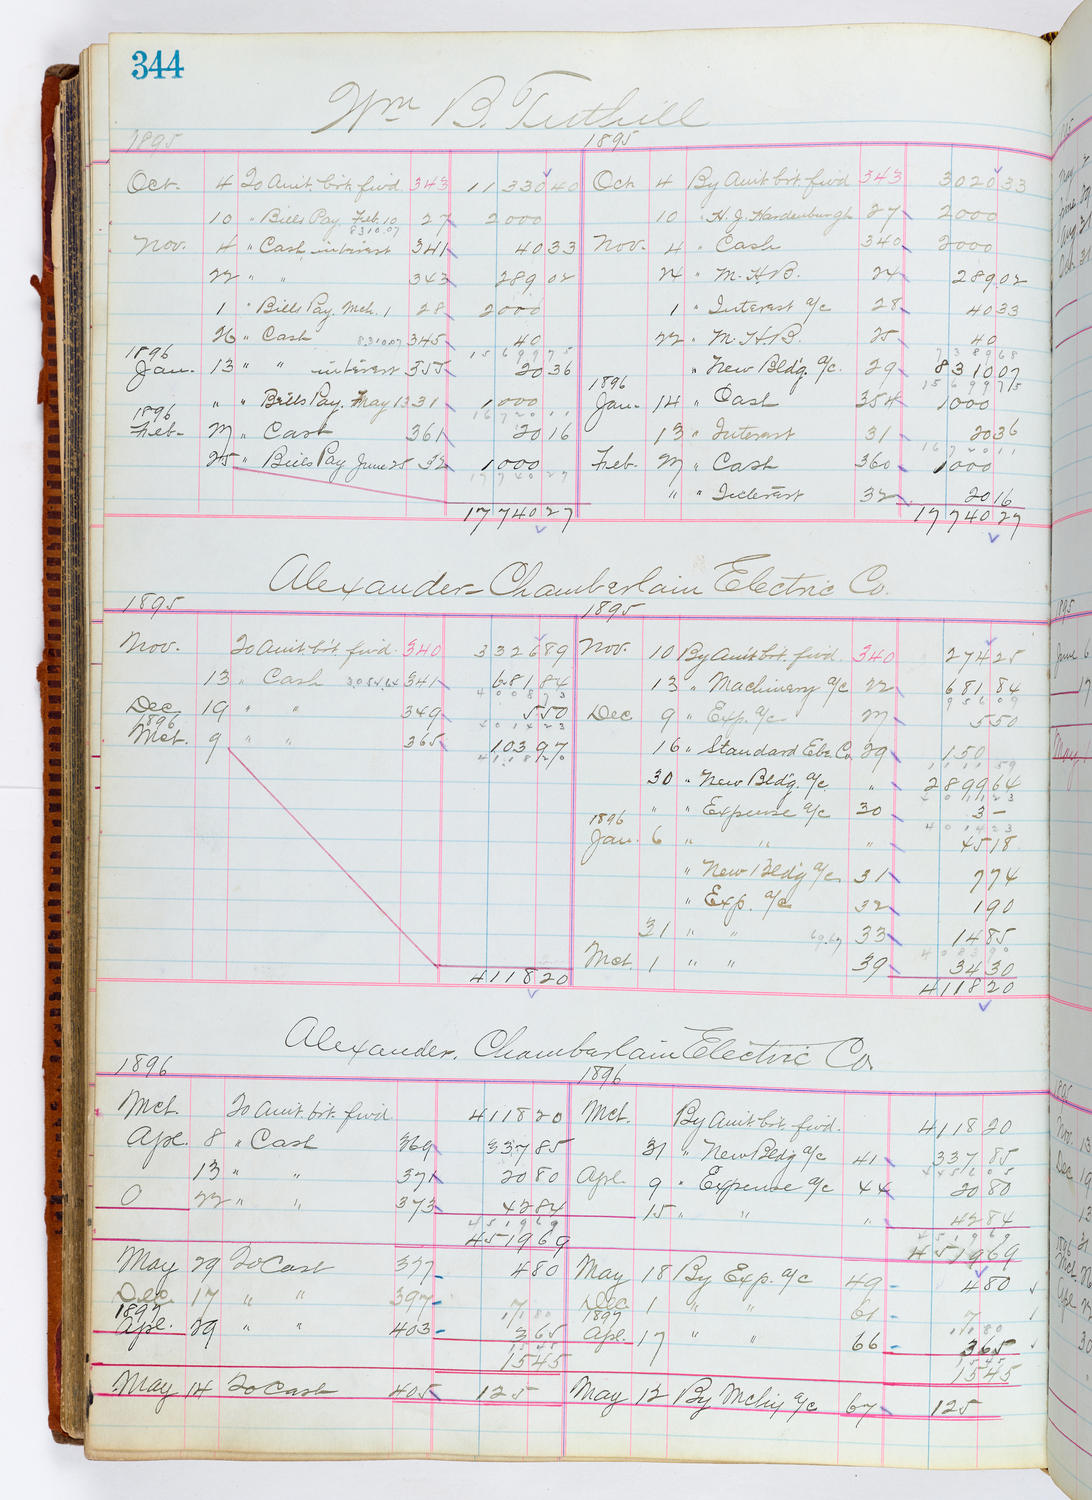 344
Wm B. Tuthill
1895 1895
Oct. 4 To Amt. bt. fwd. 343 11 330 40 Oct 4 By Amt bt. fwd 343 3020 33
10 " Bills Pay. Feb. 10 27 2000 10 " H. J. Hardenburgh 27 2000
831007
Nov. 4 " Cash interest 341 40 33 Nov. 4 " Cash 340 2000
22 " " 343 289 02 24 " M. H. B. 24 289.02
1 " Bills Pay. Mch. 1 28 2000 1 " Interest a/c 28 40 33
26 " Cash 831007 345 40 22 " M. H. B. 25 40
1569975 738968
1896 Jan. 13 " " interest 355 20 36 " New Bldg. a/c. 29 8310 07
1569975
" " Bills Pay. May 13 31 1000 1896 Jan. 14 " Cash 354 1000
1672011
1896 Feb. 27 " Cash 361 20 16 13 " Interest 31 20 36
1672011
25 " Bills Pay June 25 32 1000 Feb. 27 " Cash 360 1000
1774027
" " Interest 32 20 16
17 740 27 17 740 27
Alexander-Chamberlain Electric Co.
1895 1895
Nov. To Amt bt fwd. 340 3326 89 Nov. 10 By Amt bt. fwd. 340 274 25
13 " Cash 341 681 84 13 " Machinery a/c 22 681 84
400873 95609
Dec 19 " " 349 5 50 Dec 9 " Exp. a/c 27 5 50
401423
1896 Mct. 9 " " 365 103 97 16 " Standard Ele. Co 29 150
411820 111159
30 " New Bldg. a/c " 2899 64
401123
" " Expense a/c 30 3 –
401423
1896 Jan. 6 " " " 45 18
" New Bldg a/c 31 7 74
" Exp. a/c 32 1 90
31 " " 69.67 33 14 85
408390
Mct. 1 " " 39 34 30
4118 20 4118 20
Alexander. Chamberlain Electric Co.
1896 1896
Mct. To Amt. bt. fwd 4118 20 Mct. By Amt bt. fwd. 4118 20
Ape. 8 " Cash 369 337 85 31 " New Bldg a/c 41 337 85
445605
13 " " 371 20 80 Ape. 9 " Expense a/c 44 20 80
22 " " 373 42 84 15 " " " 42 84
451969 451969
4519 69 4519 69
May 29 To Cash 377 4 80 May 18 By Exp. a/c 49 4 80
Dec 17 " " 397 7 Dec 1 " " 61 7
1180 1180
1897 Ape. 29 " " 403 3 65 1897 Ape. 17 " " 66 3 65
1545 1545
15 45 15 45
May 14 To Cash 405 1 25 May 12 By Mchy a/c 67 1 25